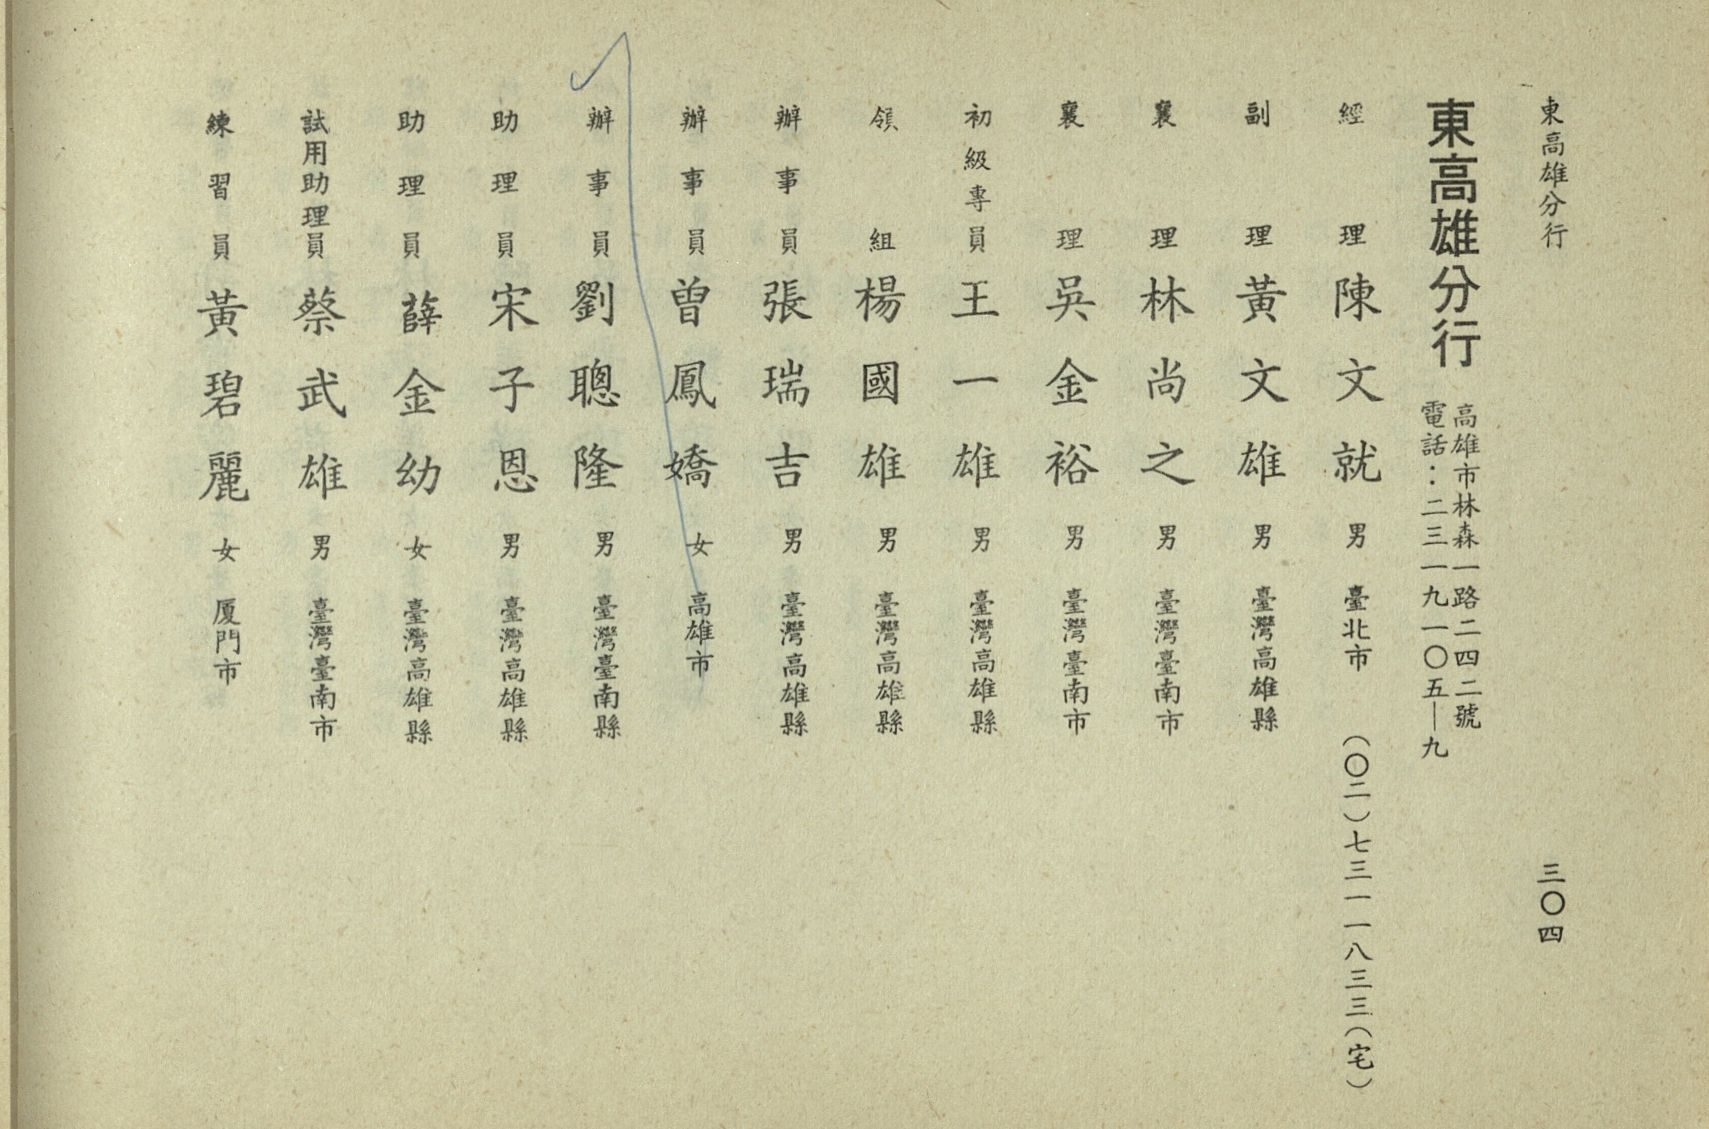 東高雄分行
三〇四
東高雄分行
高雄市林森一路二四二號
電話：二三一九一〇五—九
經理 陳文就 男 臺北市 （〇二）七三一一八三三（宅）
副理 黃文雄 男 臺灣高雄縣
襄理 林尚之 男 臺灣臺南市
襄理 吳金裕 男 臺灣臺南市
初級專員 王一雄 男 臺灣高雄縣
領組 楊國雄 男 臺灣高雄縣
辦事員 張瑞吉 男 臺灣高雄縣
辦事員 曾鳳嬌 女 高雄市
辦事員 劉聰隆 男 臺灣臺南縣
助理員 宋子恩 男 臺灣高雄縣
助理員 薛金幼 女 臺灣高雄縣
試用助理員 蔡武雄 男 臺灣臺南市
練習員 黃碧麗 女 厦門市